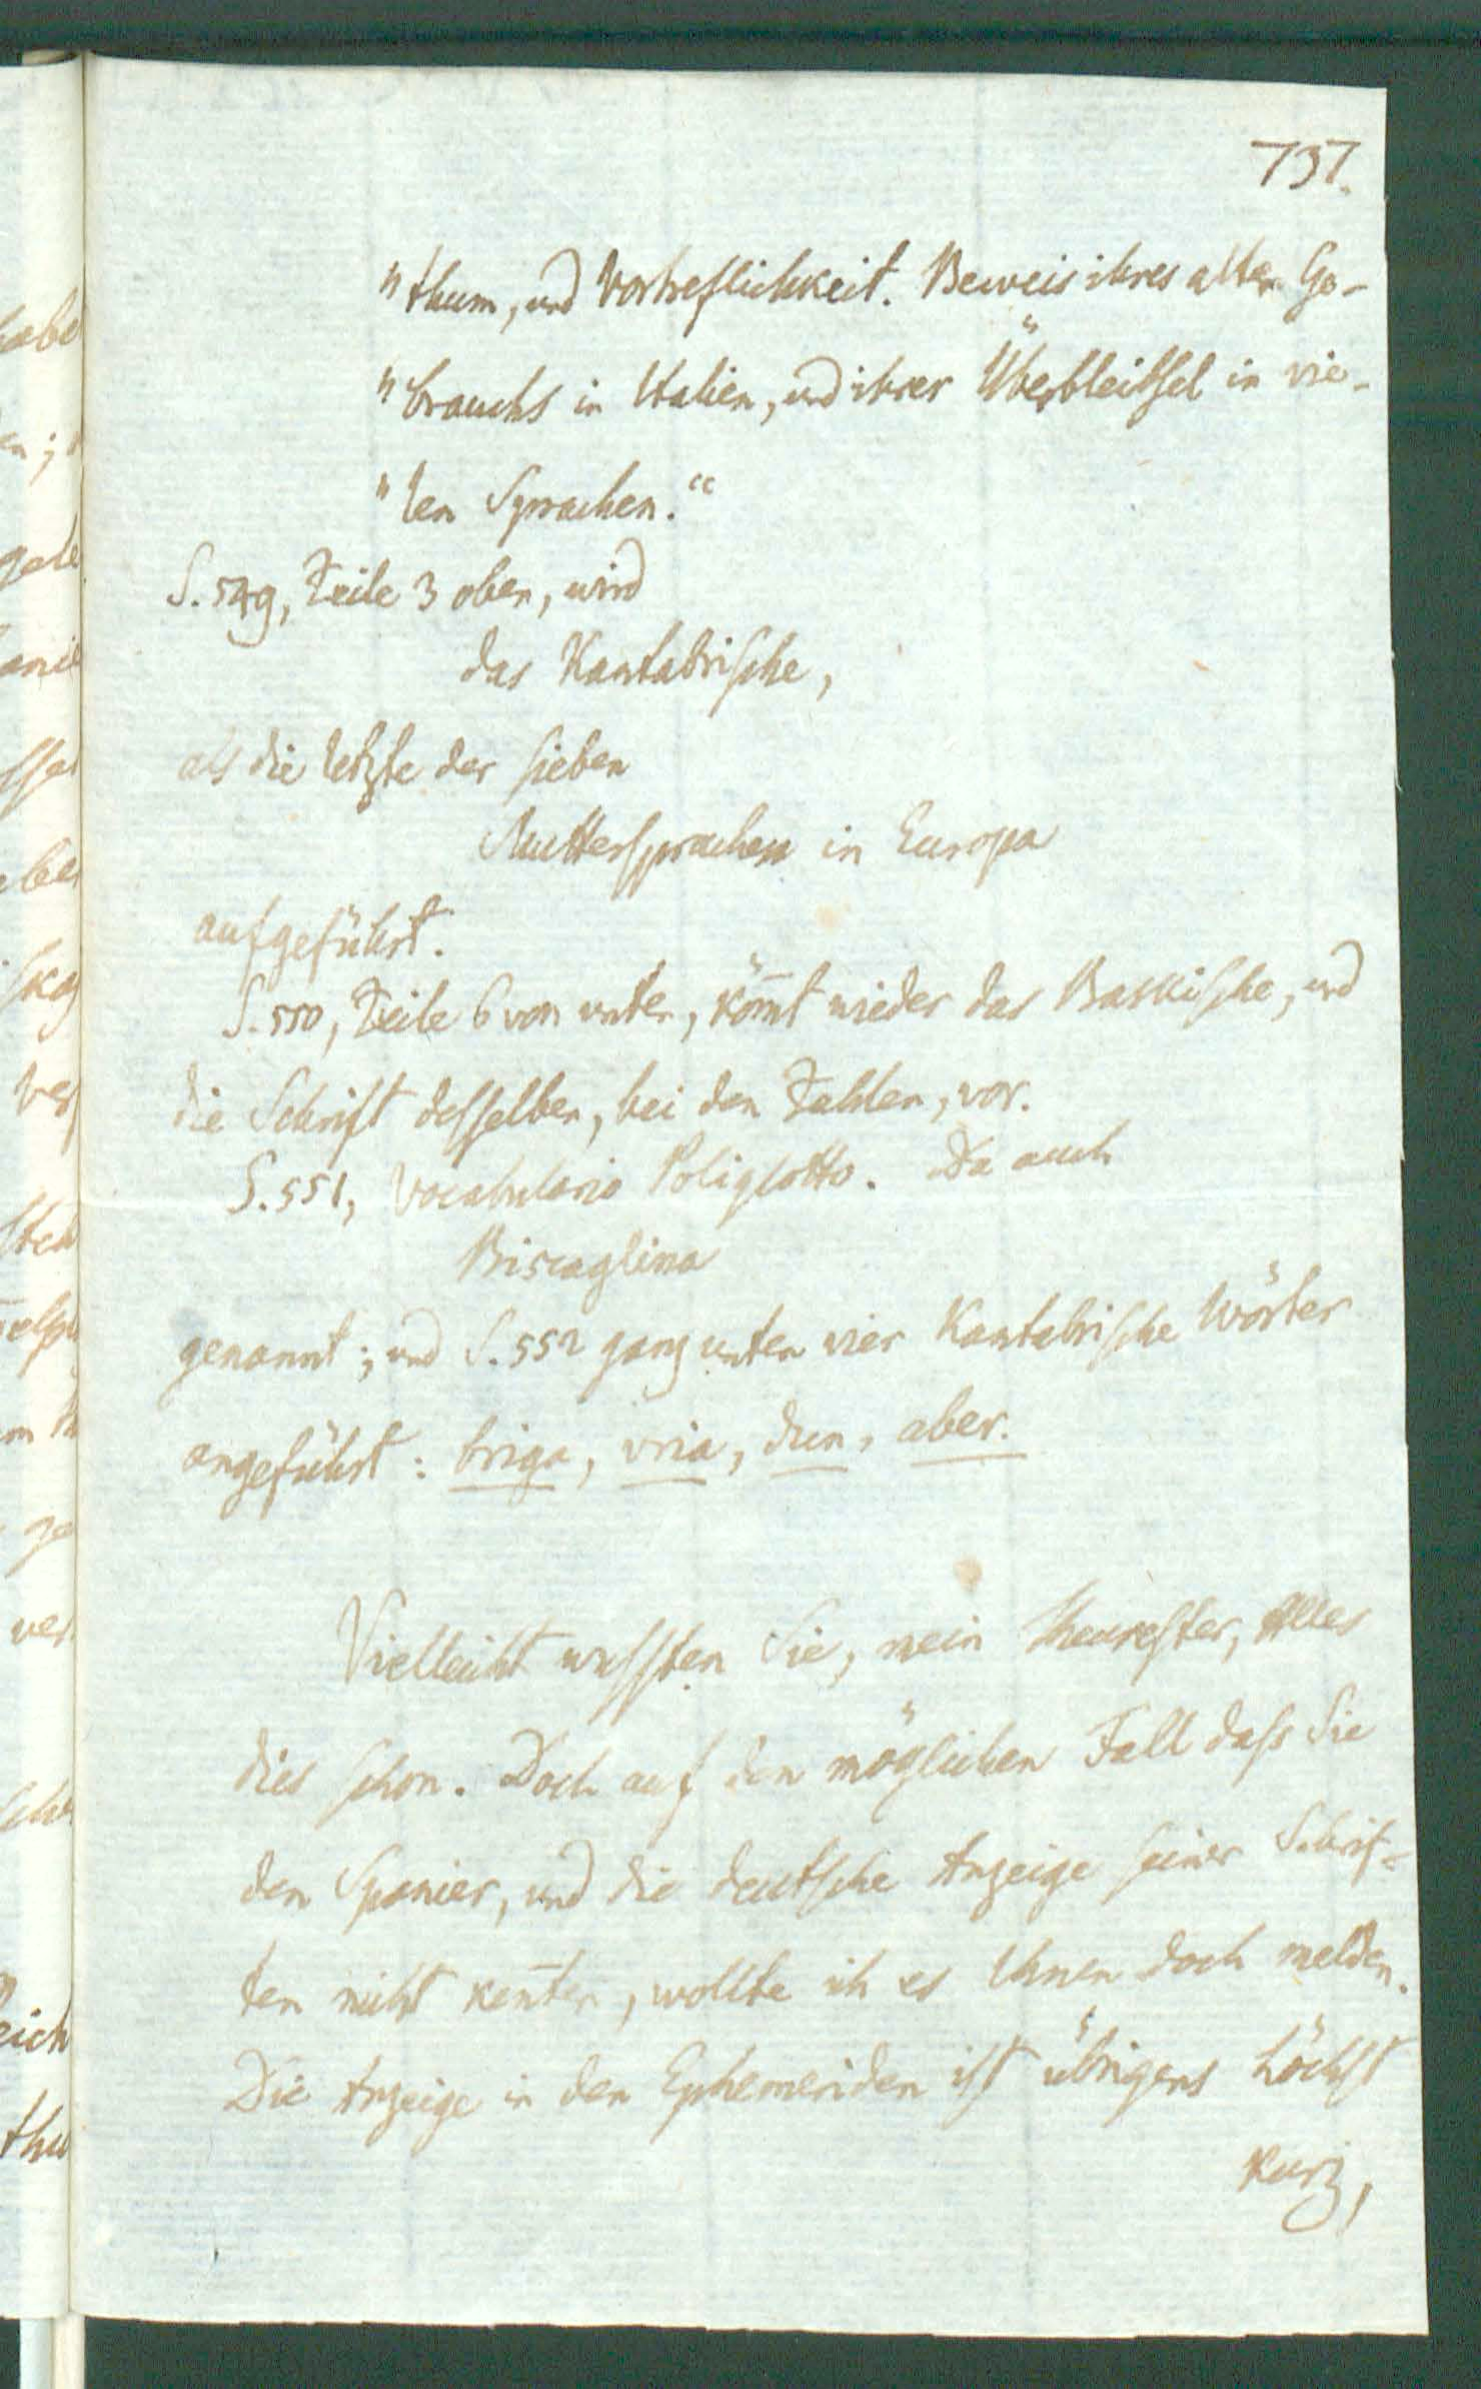 737.
"thum, und Vortreflichkeit. Beweis ihres alten Ge-
"brauchs in Italien, und ihrer Überbleibsel in vie-
"len Sprachen."
S. 549, Zeile 3 oben, wird
das Kantabrische,
als die letzte der sieben
Muttersprachen in Europa
aufgeführt.
S. 550, Zeile 6 von unten, kömt wieder das Baskische, und
die Schrift desselben, bei den Zahlen, vor.
S. 551, Vocabulario Poliglotto. Da auch
Biscaglina
genannt; und S. 552 ganz unten vier Kantabrische Wörter
angeführt: briga, vria, dun, aber.
Vielleicht wussten Sie, mein Theurester, Alles
dies schon. Doch auf den möglichen Fall dass Sie
den Spanier, und die deutsche Anzeige seiner Schrif-
ten nicht kenten, wollte ich es Ihnen doch melden.
Die Anzeige in den Ephemeriden ist übrigens höchst
kurz,